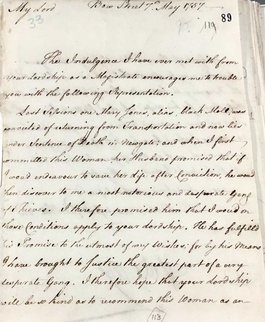 My Lord
Bow Street 7th May 1757
89
33
119
The Indulgence I have ever met with from
your Lordship as a Magistrate encourages me to trouble
you with the following Representation.
Last Sessions one Mary Jones, alias Black Moll, was
convicted of returning from Transportation and now lies
under Sentence of Death in Newgate; and when I first
committed this Woman her Husband promised that if
I would endeavour to save her Life after Conviction, he would
then discover to me a most notorious and desperate Gang
of Thieves. I therefore promised him that I would on
those Conditions apply to your Lordship. He has fulfilled
his Promise to the utmost of my Wishes; for by his Means
I have brought to Justice the greatest part of a very
desperate Gang. I therefore hope that your Lordship
will be so kind as to recommend this Woman as an
113